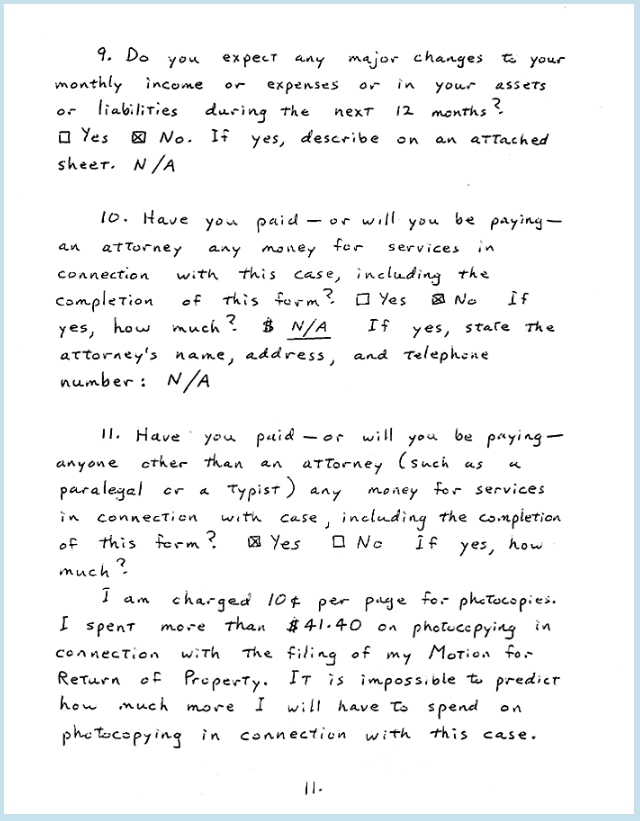 9. Do you expect any major changes to your
monthly income or expenses or in your assets
or liabilities during the next 12 months?
☐ Yes ☒ No. If yes, describe on an attached
sheet. N/A
10. Have you paid — or will you be paying —
an attorney any money for services in
connection with this case, including the
completion of this form? ☐ Yes ☒ No If
yes, how much? $ N/A If yes, state the
attorney's name, address, and telephone
number: N/A
11. Have you paid — or will you be paying —
anyone other than an attorney (such as a
paralegal or a typist) any money for services
in connection with case, including the completion
of this form? ☒ Yes ☐ No If yes, how
much?
I am charged 10¢ per page for photocopies.
I spent more than $41.40 on photocopying in
connection with the filing of my Motion for
Return of Property. It is impossible to predict
how much more I will have to spend on
photocopying in connection with this case.
11.